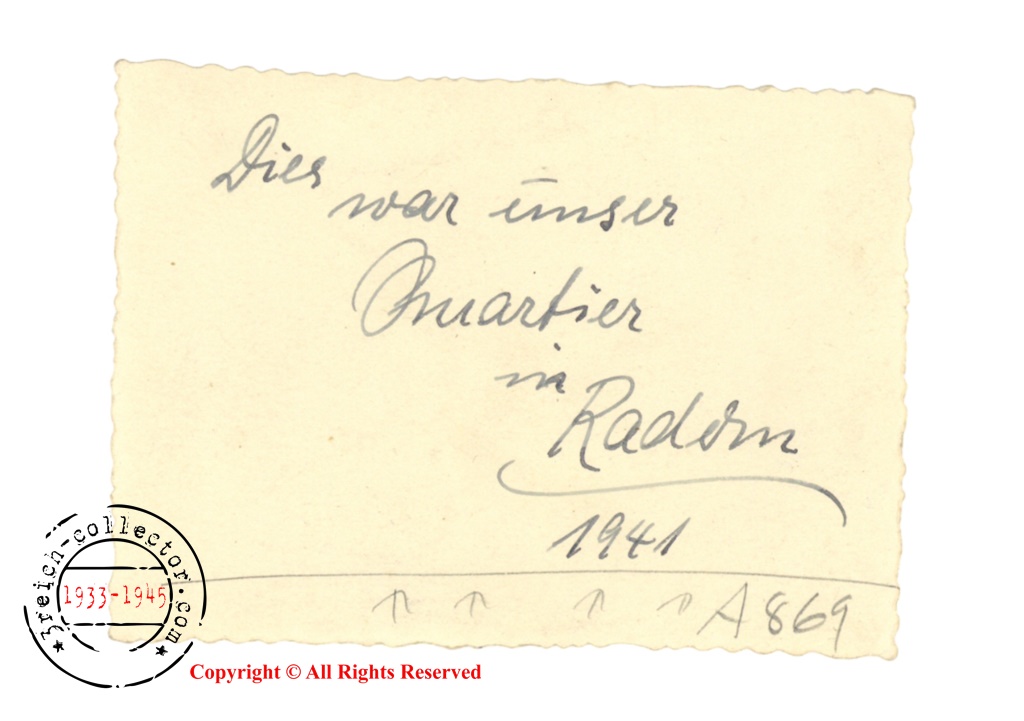 Dies
war unser
Quartier
in
Radom
1941
A869
3reich-collector.com
1933-1945
Copyright © All Rights Reserved